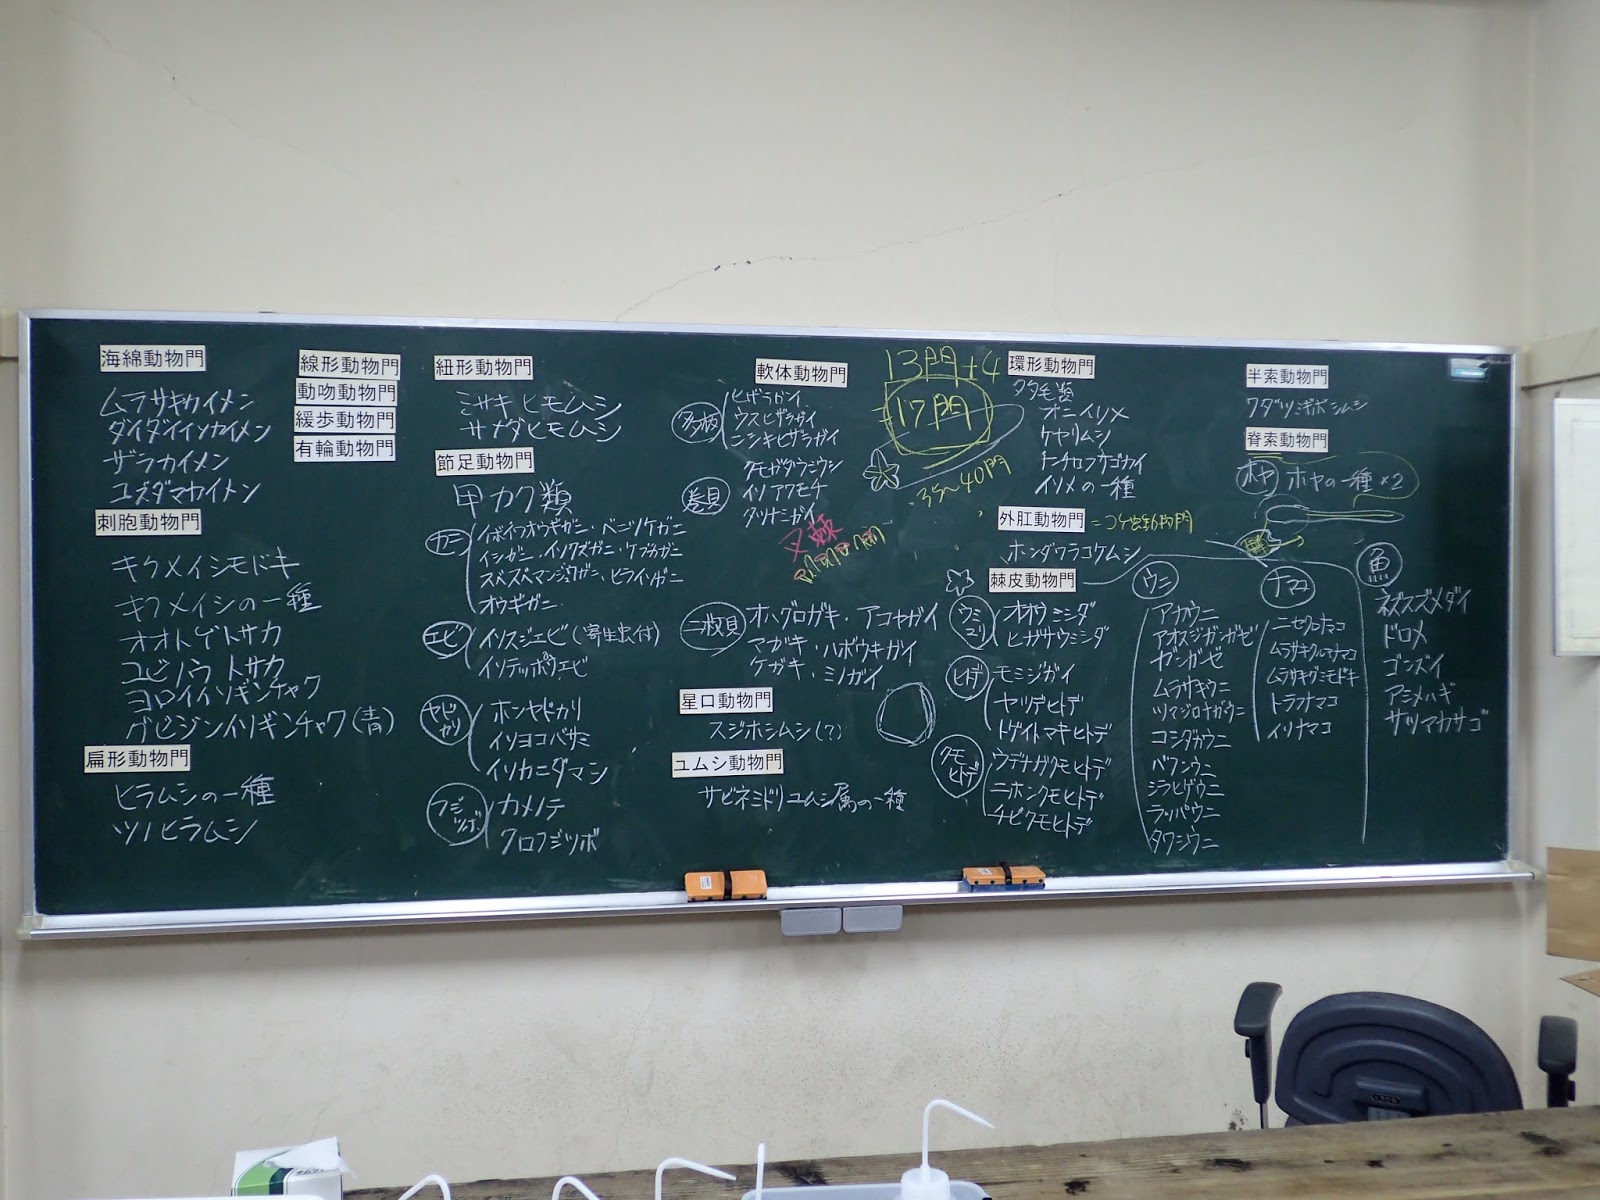 海綿動物門
ムラサキカイメン
ダイダイイソカイメン
ザラカイメン
ユズダマカイメン
刺胞動物門
キクメイシモドキ
キクメイシの一種
オオトゲトサカ
ユビノウトサカ
ヨロイイソギンチャク
グビジンイソギンチャク(青)
扁形動物門
ヒラムシの一種
ツノヒラムシ
線形動物門
動吻動物門
緩歩動物門
有輪動物門
紐形動物門
ミサキヒモムシ
サナダヒモムシ
節足動物門
甲カク類
カニ
イボイワオウギガニ・ベニツケガニ
イシガニ・イソクズガニ・ケブカガニ
スベスベマンジュウガニ、ヒライソガニ
オウギガニ
エビ
イソスジエビ(寄生虫付)
イソテッポウエビ
ヤドカリ
ホンヤドカリ
イソヨコバサミ
イソカニダマシ
フジツボ
カメノテ
クロフジツボ
軟体動物門
多柄
ヒザラガイ、
ウスヒザラガイ
ニシキヒザラガイ
巻貝
クモガタウミウシ
イソアワモチ
タツナミガイ
二枚貝
オハグロガキ・アコヤガイ
マガキ・ハボウキガイ
ケガキ・ミノガイ
星口動物門
スジホシムシ(?)
ユムシ動物門
サビネミドリユムシ属の一種
13門+4
=17門
35〜40門
環形動物門
多毛類
オニイソメ
ケヤリムシ
イソメの一種
外肛動物門=コケ虫動物門
ホンダワラコケムシ
棘皮動物門
ウミユリ
オオウミシダ
ヒガサウミシダ
ヒトデ
モミジガイ
ヤツデヒトデ
トゲイトマキヒトデ
クモヒトデ
ウデナガクモヒトデ
ニホンクモヒトデ
チビクモヒトデ
ウニ
アカウニ
アオスジガンガゼ
ガンガゼ
ムラサキウニ
ツマジロナガウニ
コシダカウニ
バフンウニ
シラヒゲウニ
ラッパウニ
タワシウニ
ナマコ
ニセクロナマコ
ムラサキクルマナマコ
ムラサキグミモドキ
トラフナマコ
イソナマコ
半索動物門
ワダツミギボシムシ
脊索動物門
ホヤ
ホヤの一種×2
魚
ネズスズメダイ
ドロメ
ゴンズイ
アミメハギ
サツマカサゴ